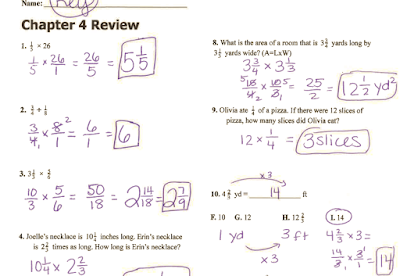 Name: Key
Chapter 4 Review
1. 1/5 × 26
1/5 × 26/1 = 26/5 = 5 1/5
2. 3/4 ÷ 1/8
3/4 × 8/1 = 6/1 = 6
3. 3 1/3 × 5/6
10/3 × 5/6 = 50/18 = 2 14/18 = 2 7/9
4. Joelle's necklace is 10 1/4 inches long. Erin's necklace
is 2 2/3 times as long. How long is Erin's necklace?
10 1/4 × 2 2/3
8. What is the area of a room that is 3 3/4 yards long by
3 1/3 yards wide? (A=LxW)
3 3/4 × 3 1/3
15/4 × 10/3 = 25/2 = 12 1/2 yd²
9. Olivia ate 1/4 of a pizza. If there were 12 slices of
pizza, how many slices did Olivia eat?
12 × 1/4 = 3 slices
×3
10. 4 2/3 yd = 14 ft
F. 10 G. 12 H. 12 2/3 I. 14
1 yd 3 ft 4 2/3 × 3 =
×3 14/3 × 3/1 = 14